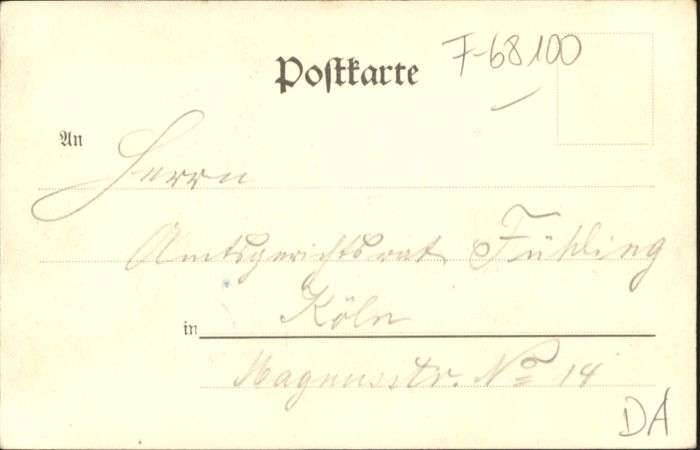 Postkarte
F-68100
An
Herrn
Amtsgerichtsrat Fühling
in Köln
Magnusstr. No 14
DA